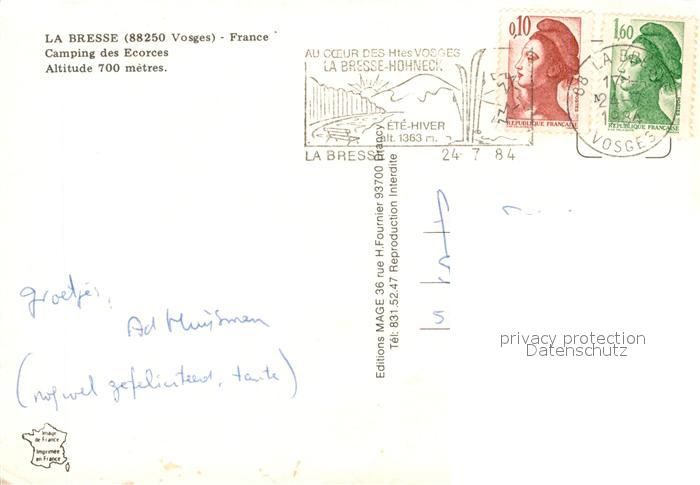 LA BRESSE (88250 Vosges) - France
Camping des Ecorces
Altitude 700 mètres.
AU CŒUR DES Htes VOSGES
LA BRESSE-HOHNECK
ÉTÉ-HIVER
alt. 1363 m.
LA BRESSE
24-7 84
0,10
REPUBLIQUE FRANÇAISE
1,60
POSTES
REPUBLIQUE FRANÇAISE
88 LA BR
VOSGES
Editions MAGE 36 rue H.Fournier 93700 Drancy
Tél: 831.52.47 Reproduction Interdite
groetjes,
Ad Huijsman
(nogwel gefeliciteerd, tante)
Image
de France
Imprimée
en France
privacy protection
Datenschutz